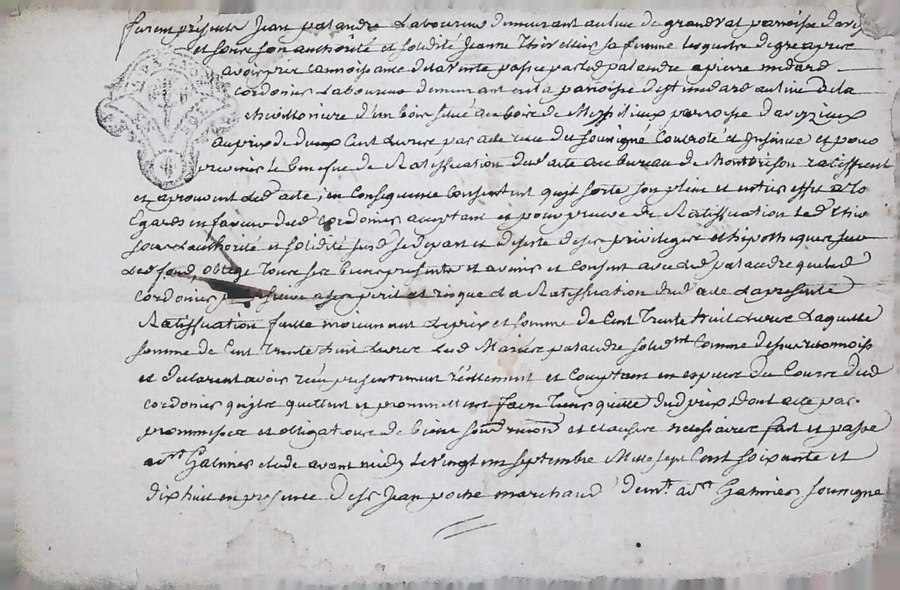 furent présents Jean palandre Laboureur demeurant au lieu du grandval paroisse d'
et sous son authorité et solidité Jeanne sa femme lesquels de gré apres
avoir pris connoissance de la vente passée par led palandre a pierre
cordonier Laboureur demeurant en la paroisse de st medard au lieu de la
d'un bois situé au bois de paroisse d'aveizieux
au prix de deux Cent Livres par acte recu du soussigné Controlé et Insinué et pour
le benefice de Ratiffication dud acte au bureau de Montbrison ratiffient
et aprouvent led acte, en Consequence Consentent qu'il sorte son plein et entier effet a
Egards en faveur dud cordonier aceptant et pour preuve de Ratiffication lad
sous authorité et solidité susd se depart et desiste de ses privileges et hipotheques sur
led fond, oblige tous ses biens presents et avenir et Consent avec led palandre que led
cordonier a ses peril et risque La Ratiffication dud acte La presente
Ratiffication faite moienant le prix et somme de Cent Trente huit Livres Laquelle
somme de Cent Trente huit Livres Lesd Mariés palandre solid.nt Comme dessus reconnoissent
et declarent avoir reçu presentement réellement et Comptant en especes du Cours dud
cordonier qu'ils quittent et promettent faire Tenir quitte dud prix Dont acte par
promesses et obligatoire de biens et clauses necessaires fait et passé
a st Galmier etude avant midy Le vingt un septembre Mille sept Cent soixante et
dix huit en presence de sr Jean poche marchand dem.t a st Galmier soussigné